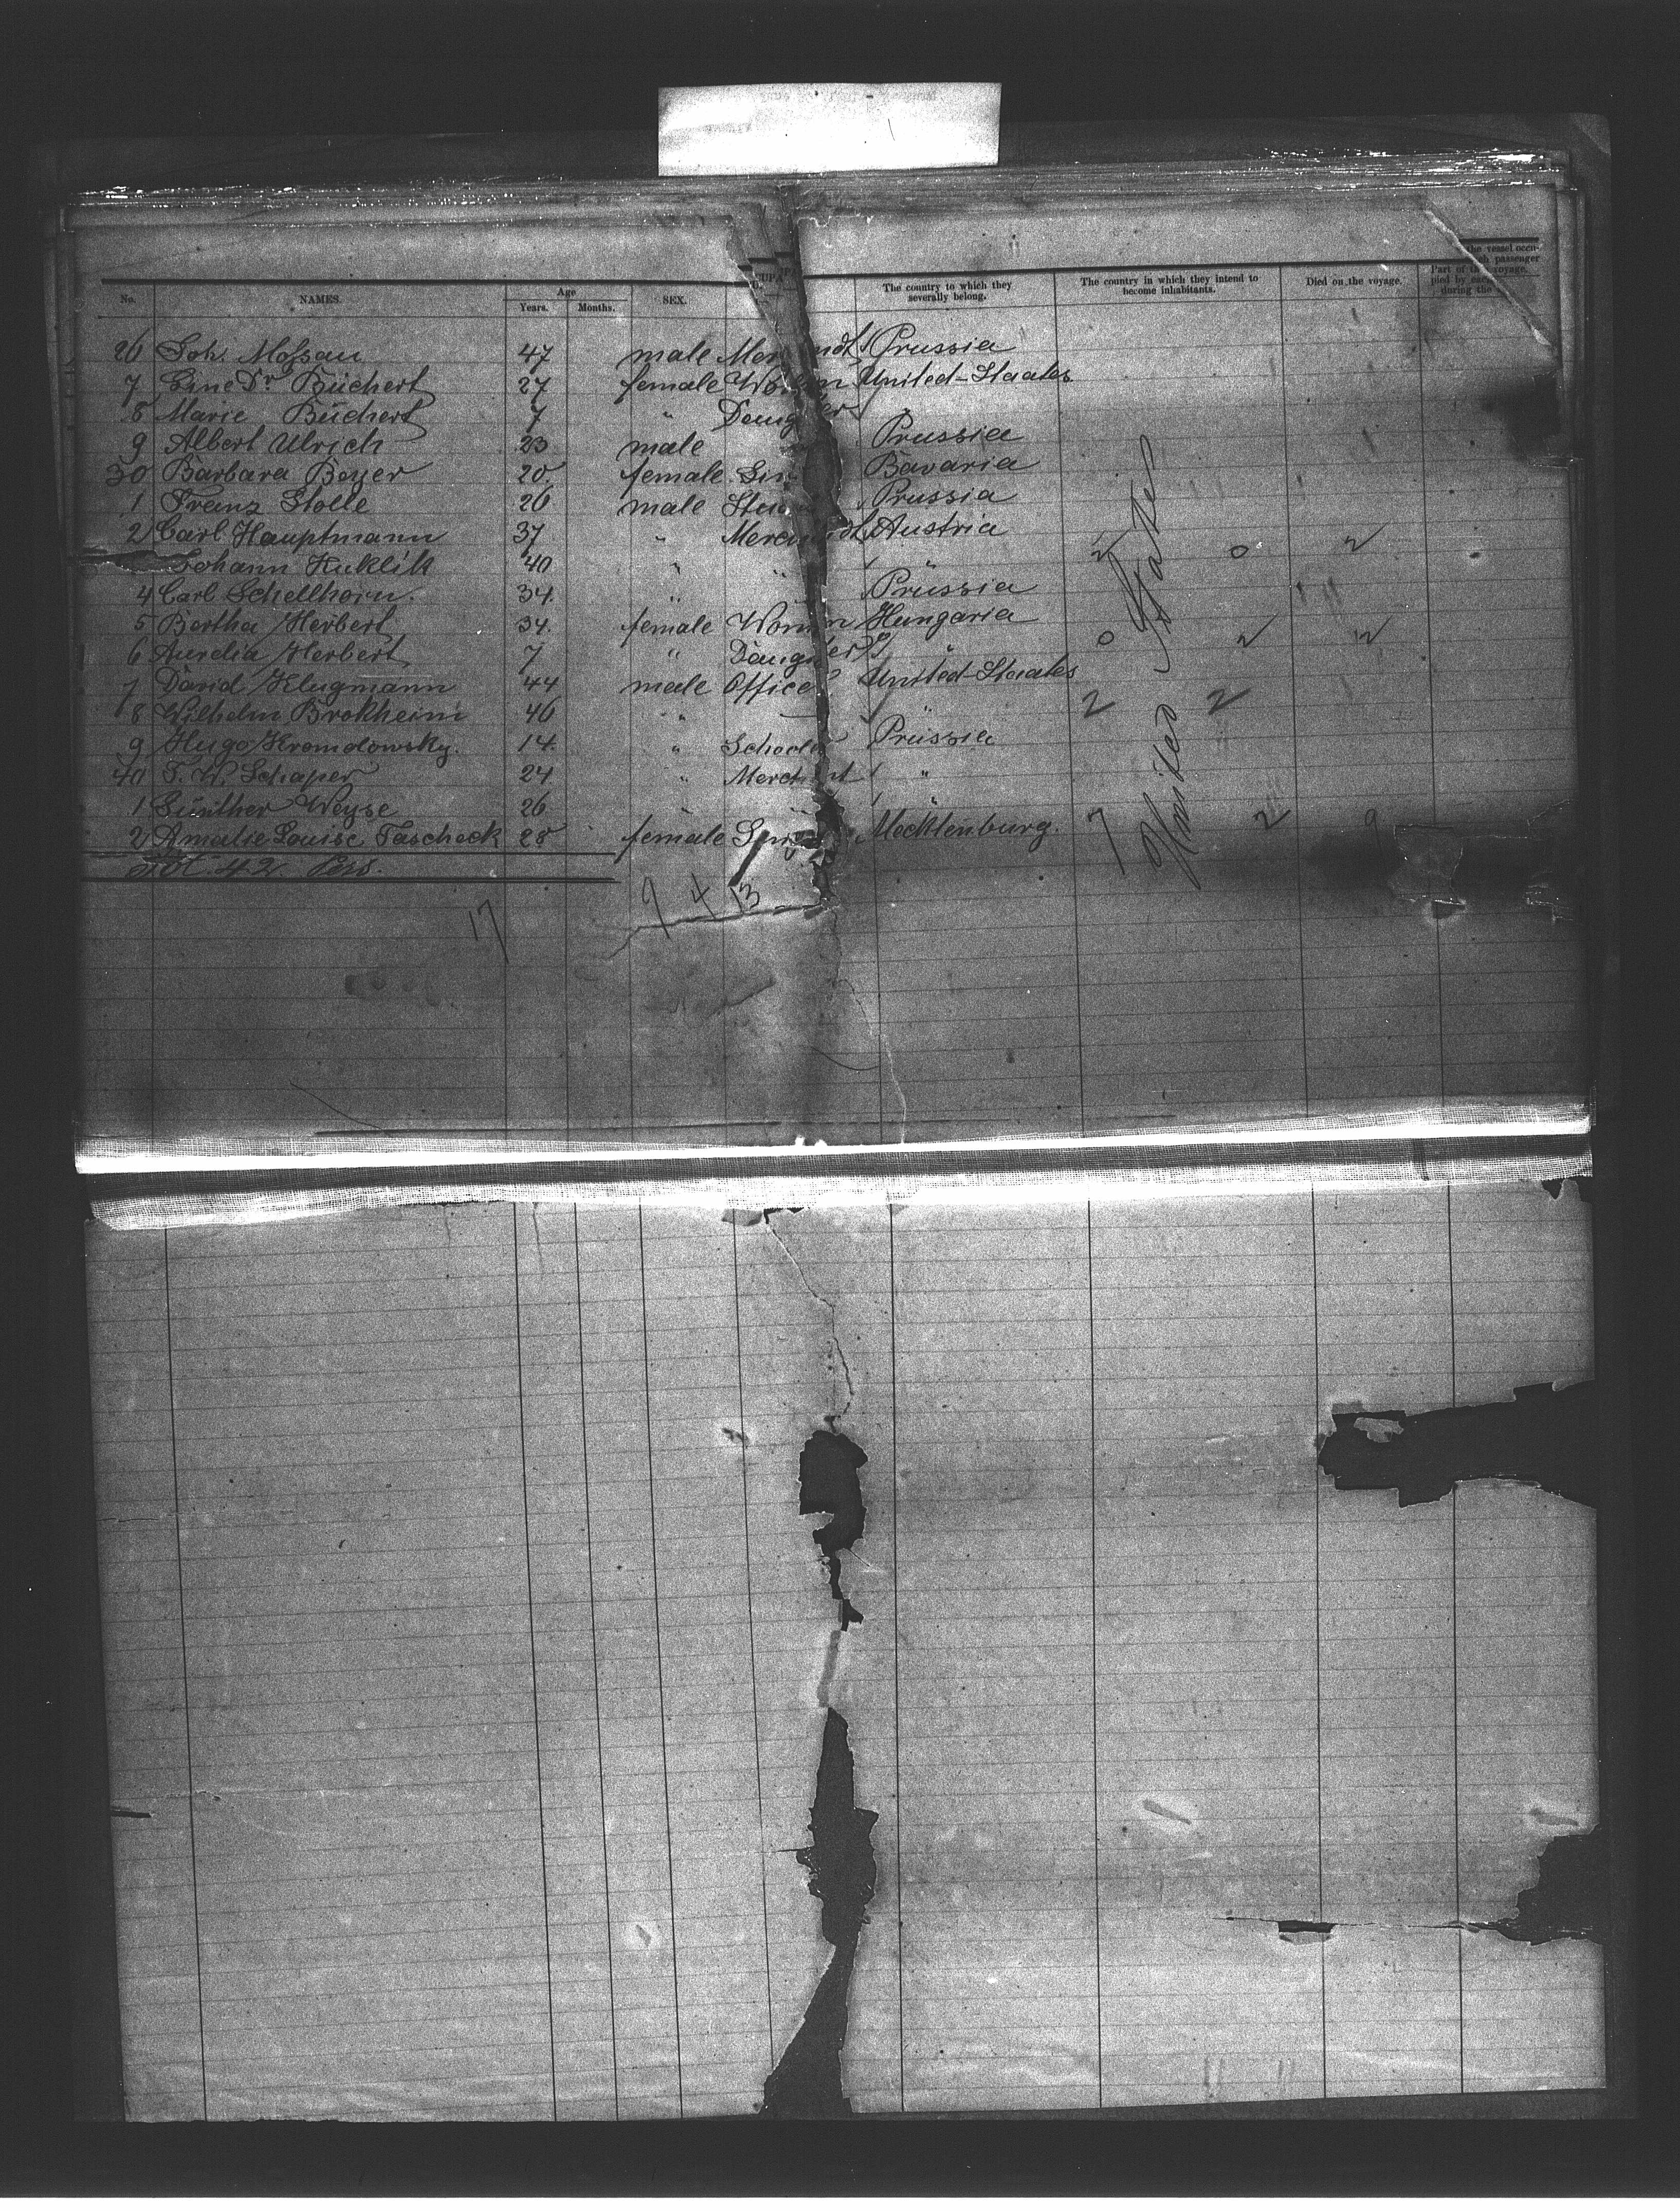 No. NAMES. Age Years. Months. SEX. The country to which they severally belong. The country in which they intend to become inhabitants. Died on the voyage. Part of the vessel occupied by each passenger during the voyage.
26 Joh. Moßau 47 male Prussia
7 Büchert 27 female United-Staates
8 Marie Büchert 7 "
9 Albert Ulrich 23 male Prussia
30 Barbara Beyer 20 female Bavaria
1 Franz Stolle 26 male Prussia
2 Carl Hauptmann 37 " Austria
Johann Kuklik 40 " " "
4 Carl Schellhorn. 34. " Prussia
5 Bertha Herbert 34. female Hungaria
6 Aurelia Herbert 7 " "
7 David Klugmann 44 male Officer United-Staates
8 Wilhelm Brokheim 46 " "
9 Hugo Kromdowsky. 14. " Prussia
40 F. W. Schaper 24 " Merchant "
1 Günther Weyse 26 " "
2 Amalie Louise Tascheck 28 female Mecklenburg.
42 Pers.
United States
17 9 4 13